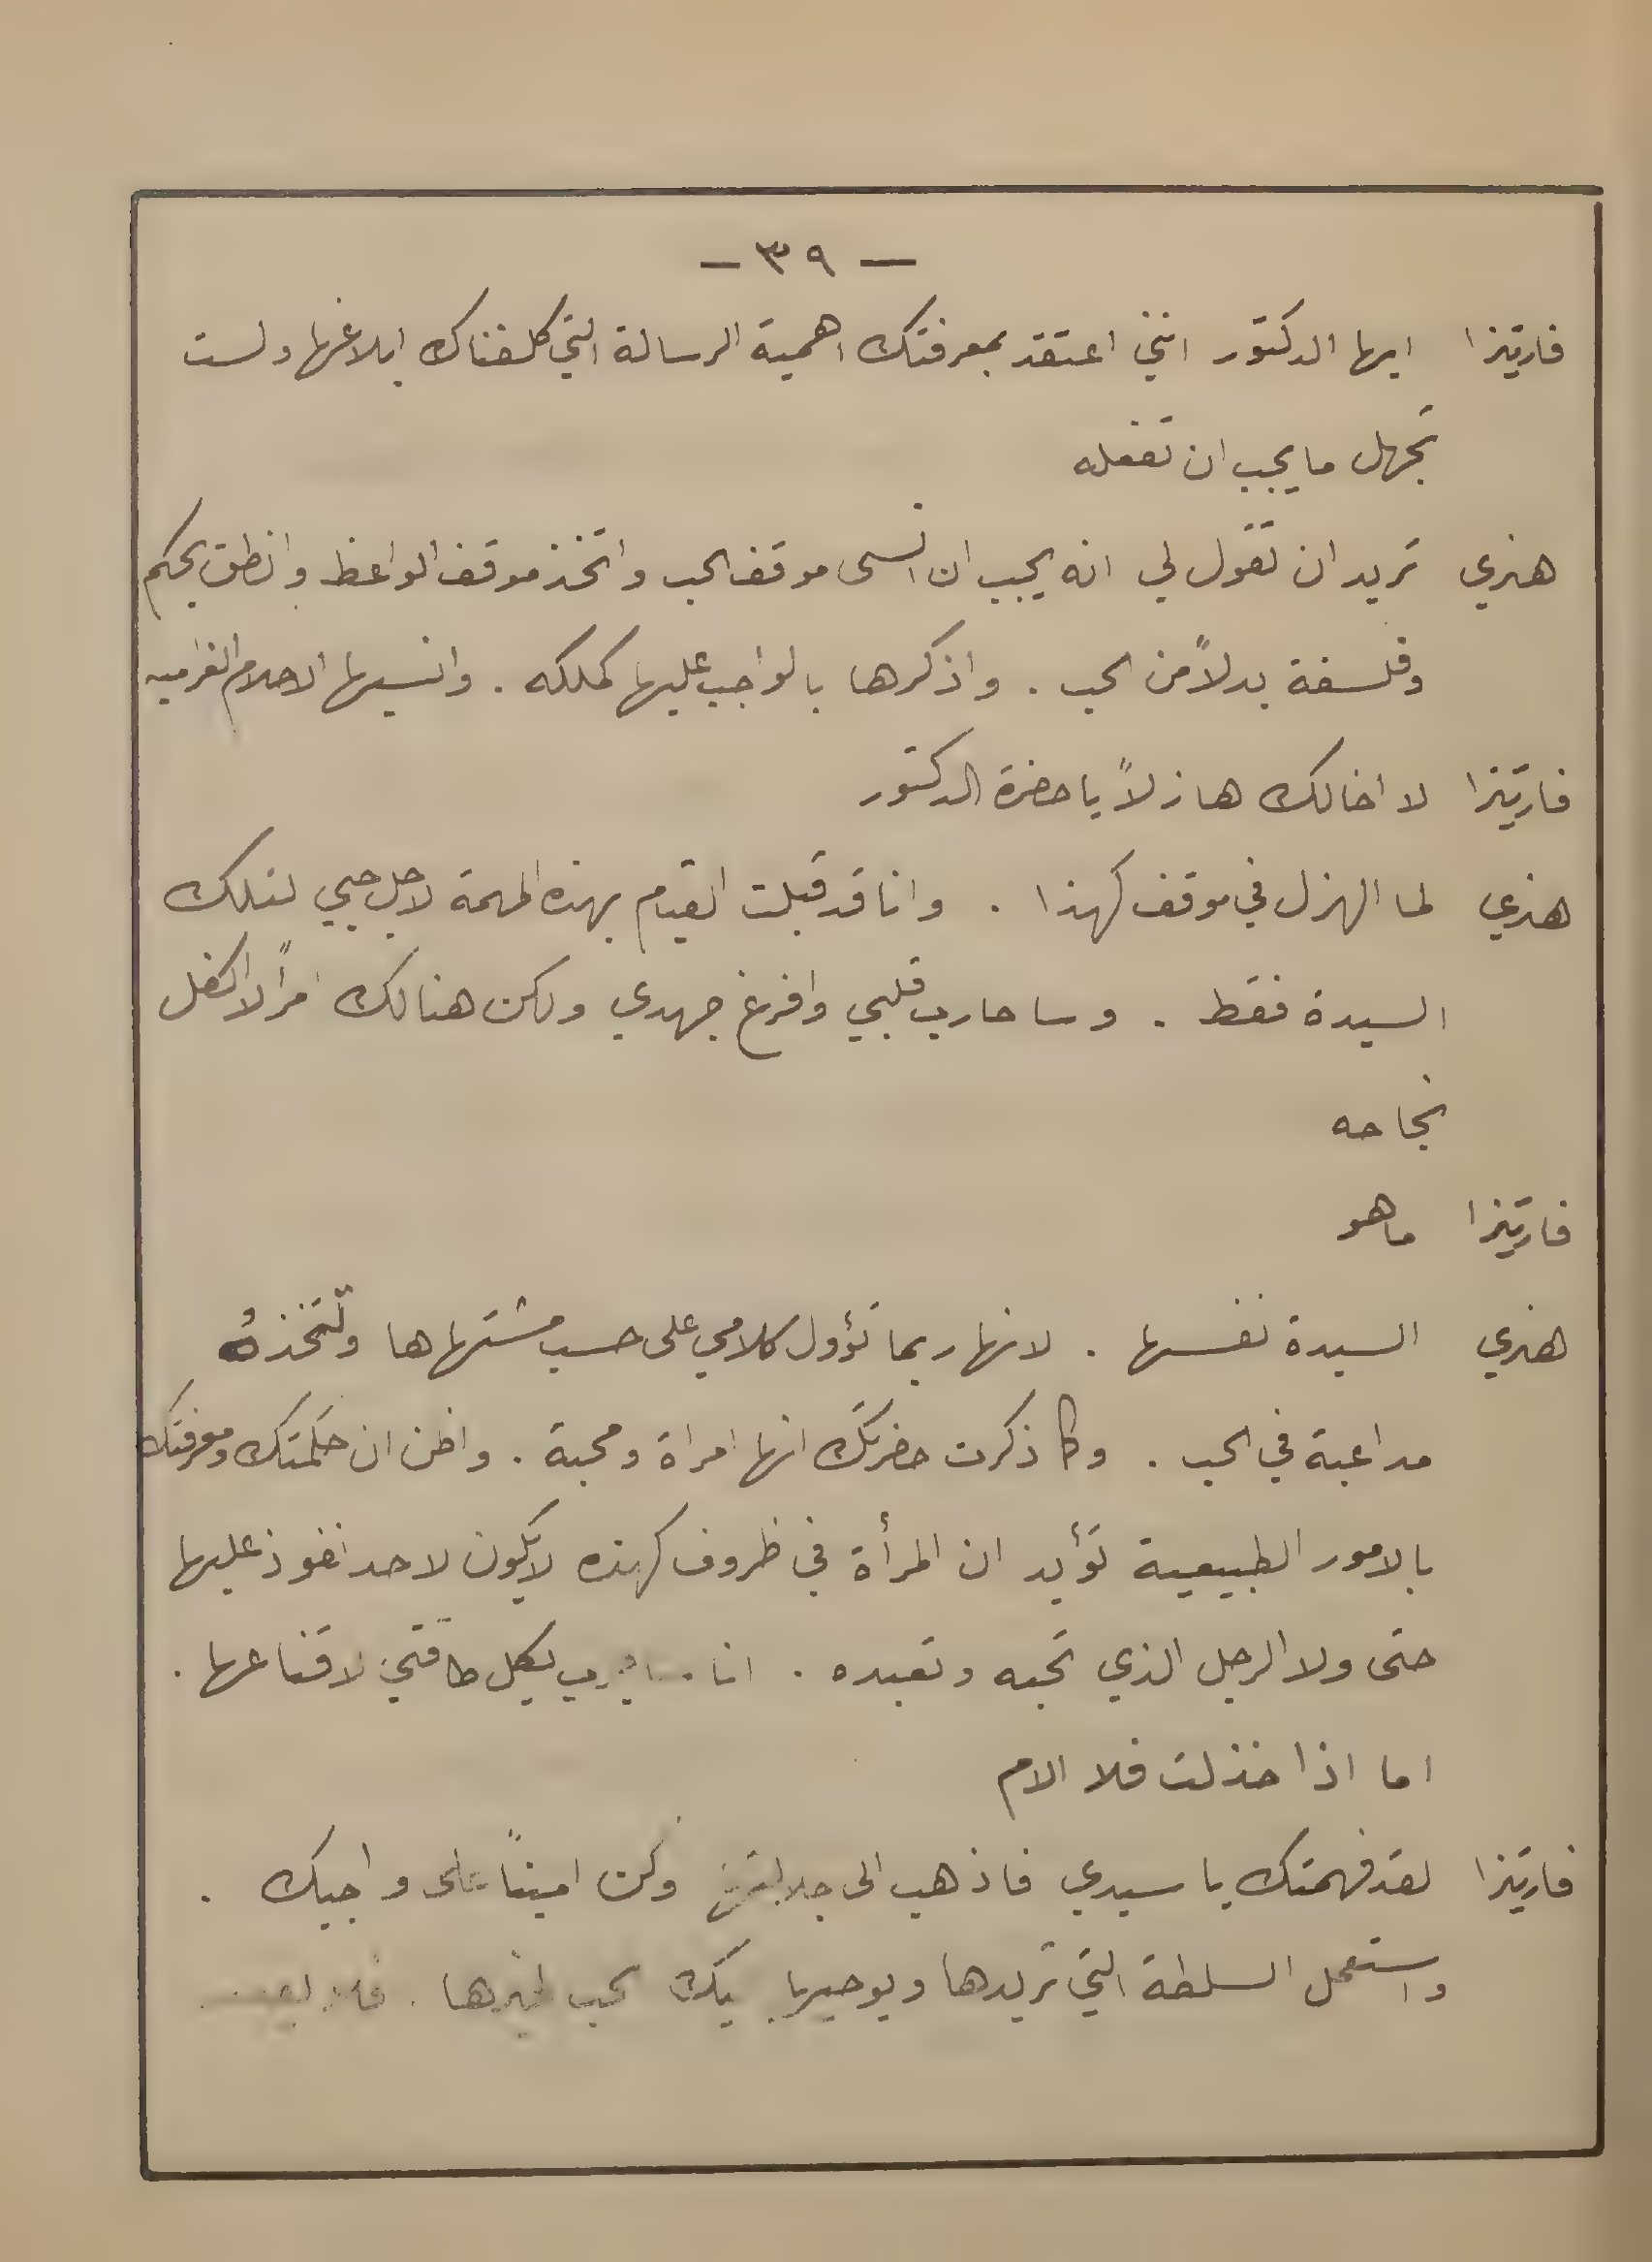 — ٣٩ —
فارتيزا ايها الدكتور انني اعتقد بمعرفتك اهمية الرسالة التي كلفناك ابلاغها ولست
تجهل ما يجب ان تفعله
هنري تريد ان تقول لي انه يجب ان انسى موقف الحب واتخذ موقف الواعظ وانطق بحكم
وفلسفة بدلاً من الحب . واذكرها بالواجب عليها كملكه . وانسيها الاحلام الغراميه
فارتيزا لا اخالك هازلاً يا حضرة الدكتور
هنري لما الهزل في موقف كهذا . وانا قد قبلت القيام بهذه المهمة لاجل حبي لتلك
السيدة فقط . وساحارب قلبي وافرغ جهدي ولكن هنالك امراً لا اكفل
نجاحه
فارتيزا ما هو
هنري السيدة نفسها . لانها ربما تؤول كلامي على حسب مشتهاها وتتخذهُ
مداعبة في الحب . وكما ذكرت حضرتك انها امراة ومحبة . واظن ان حكمتك ومعرفتك
بالامور الطبيعية تؤيد ان المرأة في ظروف كهذه لا يكون لاحد نفوذ عليها
حتى ولا الرجل الذي تحبه وتعبده . انا بكل طاقتي لاقناعها .
اما اذا خذلت فلا الام
فارتيزا لقد فهمتك يا سيدي فاذهب الى وكن اميناً على واجبك .
واستعمل السلطة التي تريدها ويوحيها حب لغيرها .